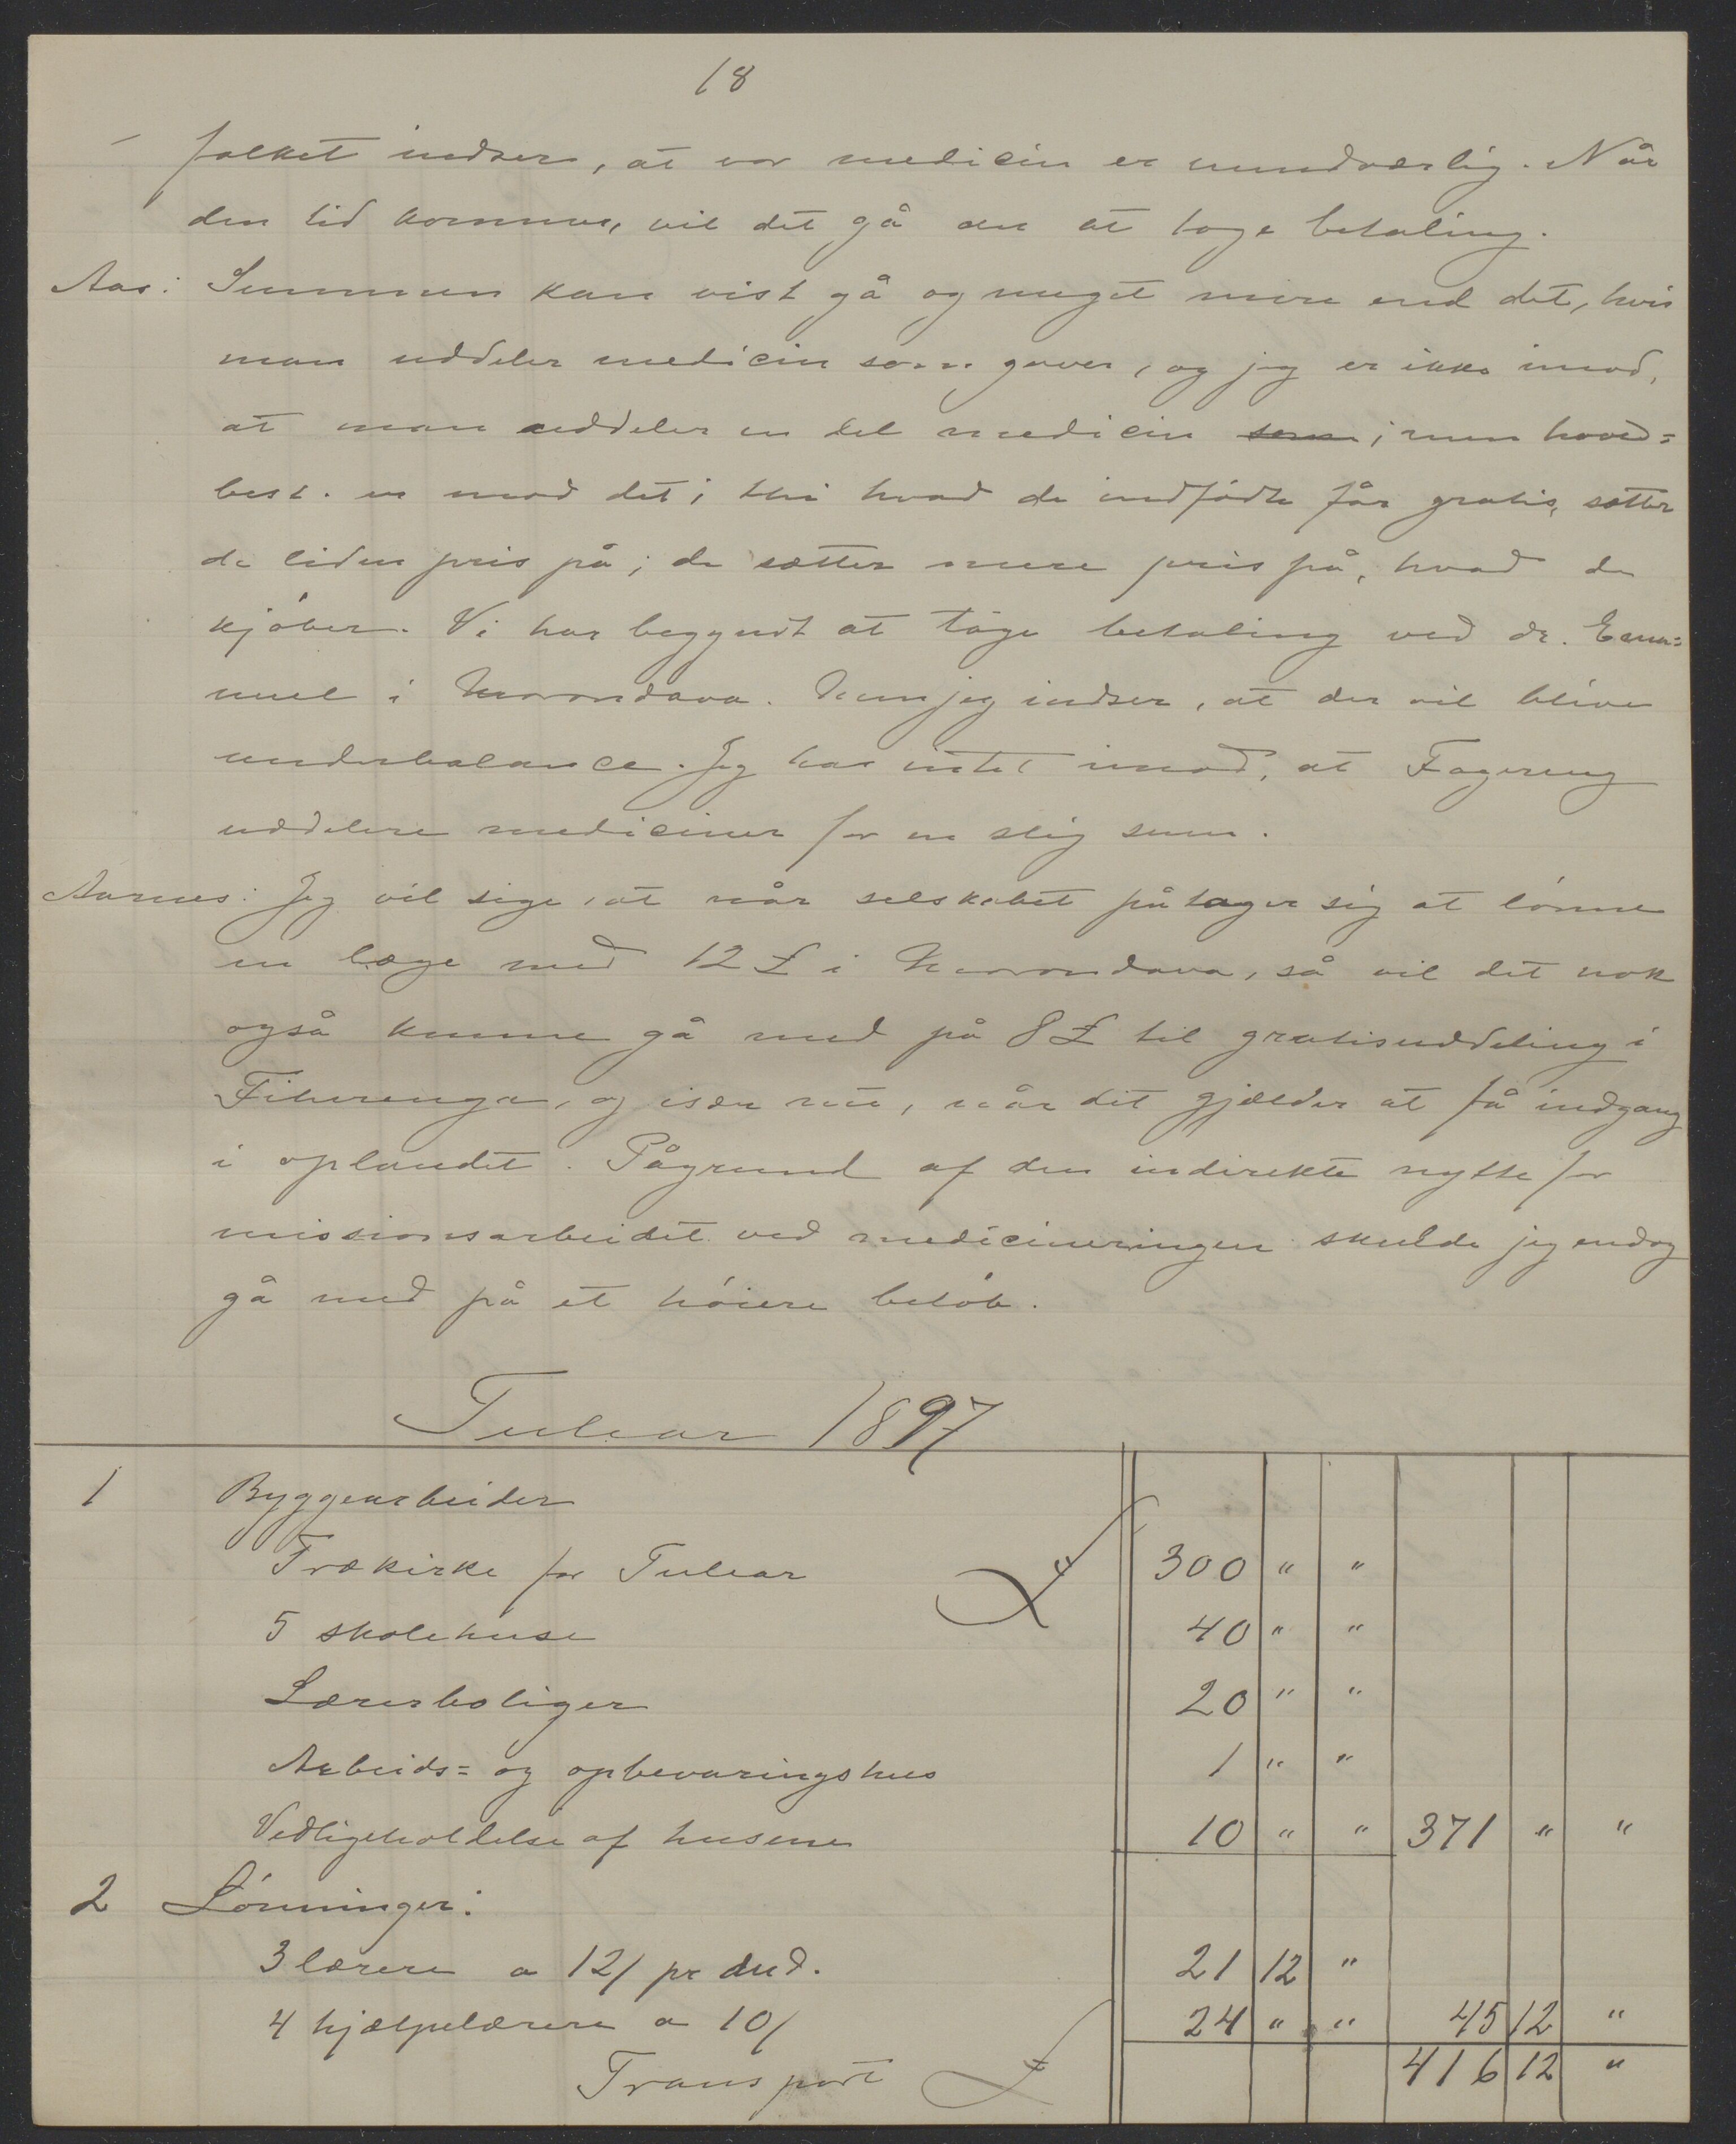 18
folket indser, at vor medicin er nundværlig. Når
den tid kommer, vil det gå an at tage betaling.
Aas: Summen kan vist gå og meget mere end det, hvis
man uddeler medicin som gaver, og jeg er ikke imod,
at man uddeler en del medicin som; men hoved=
best. er mod det; thi hvad de indfødte får gratis, sætter
de liden pris på; de sætter mere pris på, hvad de
kjøber. Vi har begyndt at tage betaling ved dr. Eman=
uel i Morondava. Men jeg indser, at der vil blive
underbalance. Jeg har intet imod, at Fagereng
uddelere mediciner for en slig sum.
Aarnes: Jeg vil sige, at når selskabet påtager sig at lønne
en læge med 12 £ i Morondava, så vil det nok
også kunne gå med på 8 £ til gratisuddeling i
Fiherenga, og især nu, når det gjælder at få indgang
i oplandet. Pågrund af den indirekte nytte for
missionsarbeidet ved medicineringen skulde jeg endog
gå med på et høiere beløb.
Tulear 1897
1 Byggearbeider
Trækirke for Tulear £ 300 " "
5 skolehuse 40 " "
Lærerboliger 20 " "
Arbeids= og opbevaringshus 1 " "
Vedligeholdelse af husene 10 " " 371 " "
2 Lønninger:
3 lærere a 12/ pr. md. 21 12 "
4 hjælpelærere a 10/ 24 " " 45 12 "
Transport £ 416 12 "